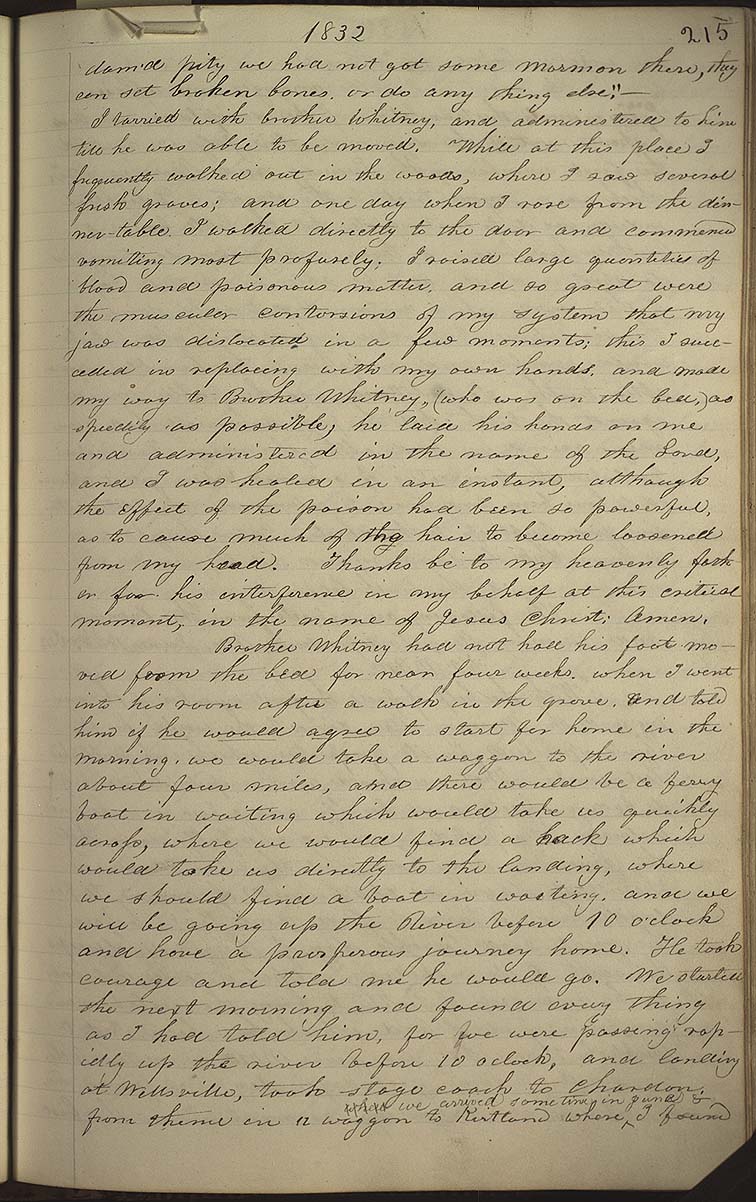 1832 215
dam'd pity we had not got some Mormon there, they
can set broken bones. or do any thing else."—
I tarried with brother Whitney, and administered to him
till he was able to be moved. While at this place I
frequently walked out in the woods, where I saw several
fresh graves; and one day when I rose from the din-
ner-table. I walked directly to the door and commenced
vomiting most profusely. I raised large quantities of
blood and poisonous matter. and so great were
the muscular contorsions of my system that my
jaw was dislocated in a few moments; this I succ-
ceded in replacing with my own hands. and made
my way to Brother Whitney, (who was on the bed,) as
speedily as possible; he laid his hands on me
and administered in the name of the Lord,
and I was healed in an instant, although
the effect of the poison had been so powerful,
as to cause much of the hair to become loosened
from my head. Thanks be to my heavenly fath-
er for his interference in my behalf at this critical
moment, in the name of Jesus Christ; Amen.
Brother Whitney had not had his foot mo-
ved from the bed for near four weeks. when I went
into his room after a walk in the grove. and told
him if he would agree to start for home in the
morning. we would take a waggon to the river
about four miles, and there would be a ferry
boat in waiting which would take us quickly
across, where we would find a hack which
would take us directly to the landing, where
we should find a boat in waiting. and we
will be going up the River before 10 o'clock
and have a prosperous journey home. He took
courage and told me he would go. We started
the next morning and found every thing
as I had told him, for we were passing rap-
idly up the river before 10 oclock, and landing
at Wellsville, took stage coach to Chardon,
we arrived sometime in June &
from thence in a waggon to Kirtland where, I found